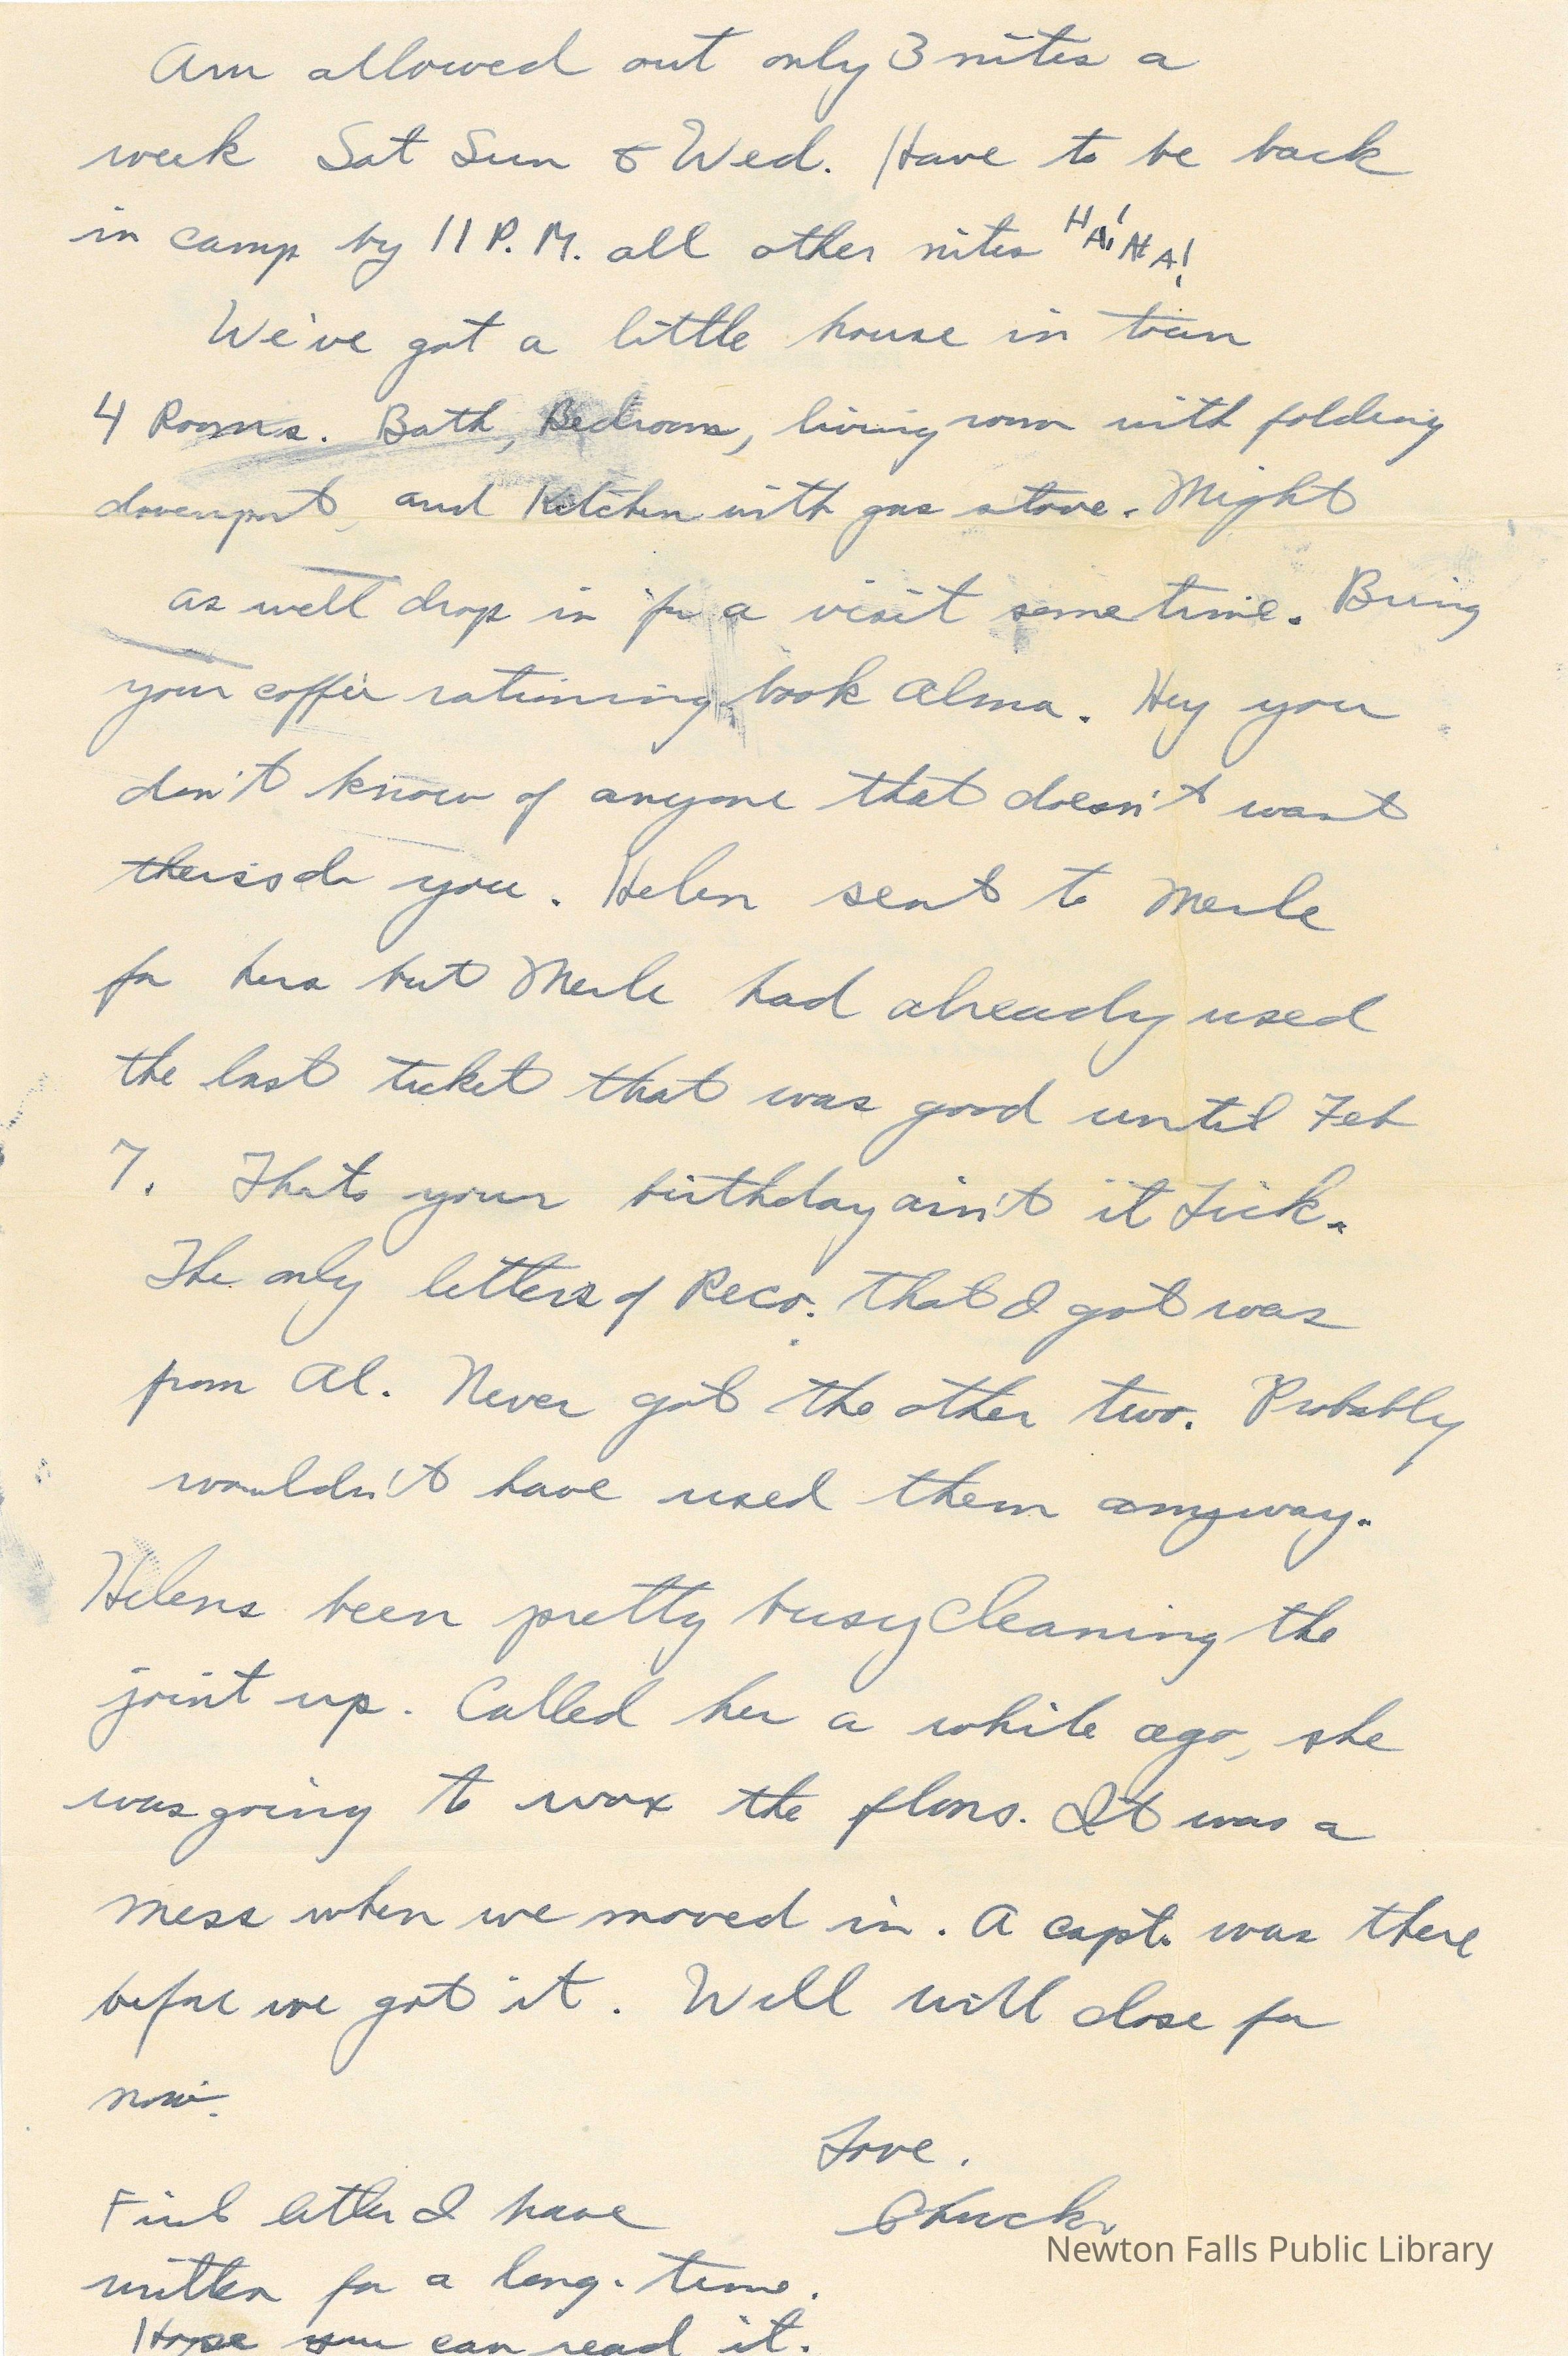 Am allowed out only 3 nites a
week Sat Sun & Wed. Have to be back
in camp by 11 P.M. all other nites HA! HA!
We've got a little house in town
4 Rooms. Bath, Bedroom, living room with folding
davenport, and Kitchen with gas stove. Might
as well drop in for a visit sometime. Bring
your coffee rationing book Alma. Hey you
don't know of anyone that doesn't want
theirs do you. Helen sent to Merle
for hers but Merle had already used
the last ticket that was good until Feb
7. Thats your birthday ain't it Lick.
The only letters of Reco. that I got was
from Al. Never got the other two. Probably
wouldn't have used them anyway.
Helens been pretty busy cleaning the
joint up. Called her a while ago, she
was going to wax the floors. It was a
mess when we moved in. A capt. was there
before we got it. Well will close for
now.
Love.
Chuck
First letter I have
written for a long. time.
Hope you can read it.
Newton Falls Public Library